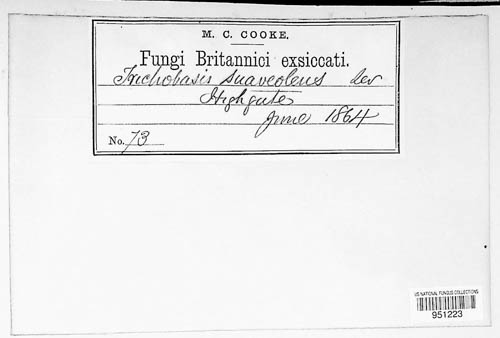 M. C. COOKE.
Fungi Britannici exsiccati.
Trichobasis suaveolens Lev
Highgate
June 1864
No. 73
US NATIONAL FUNGUS COLLECTIONS
951223